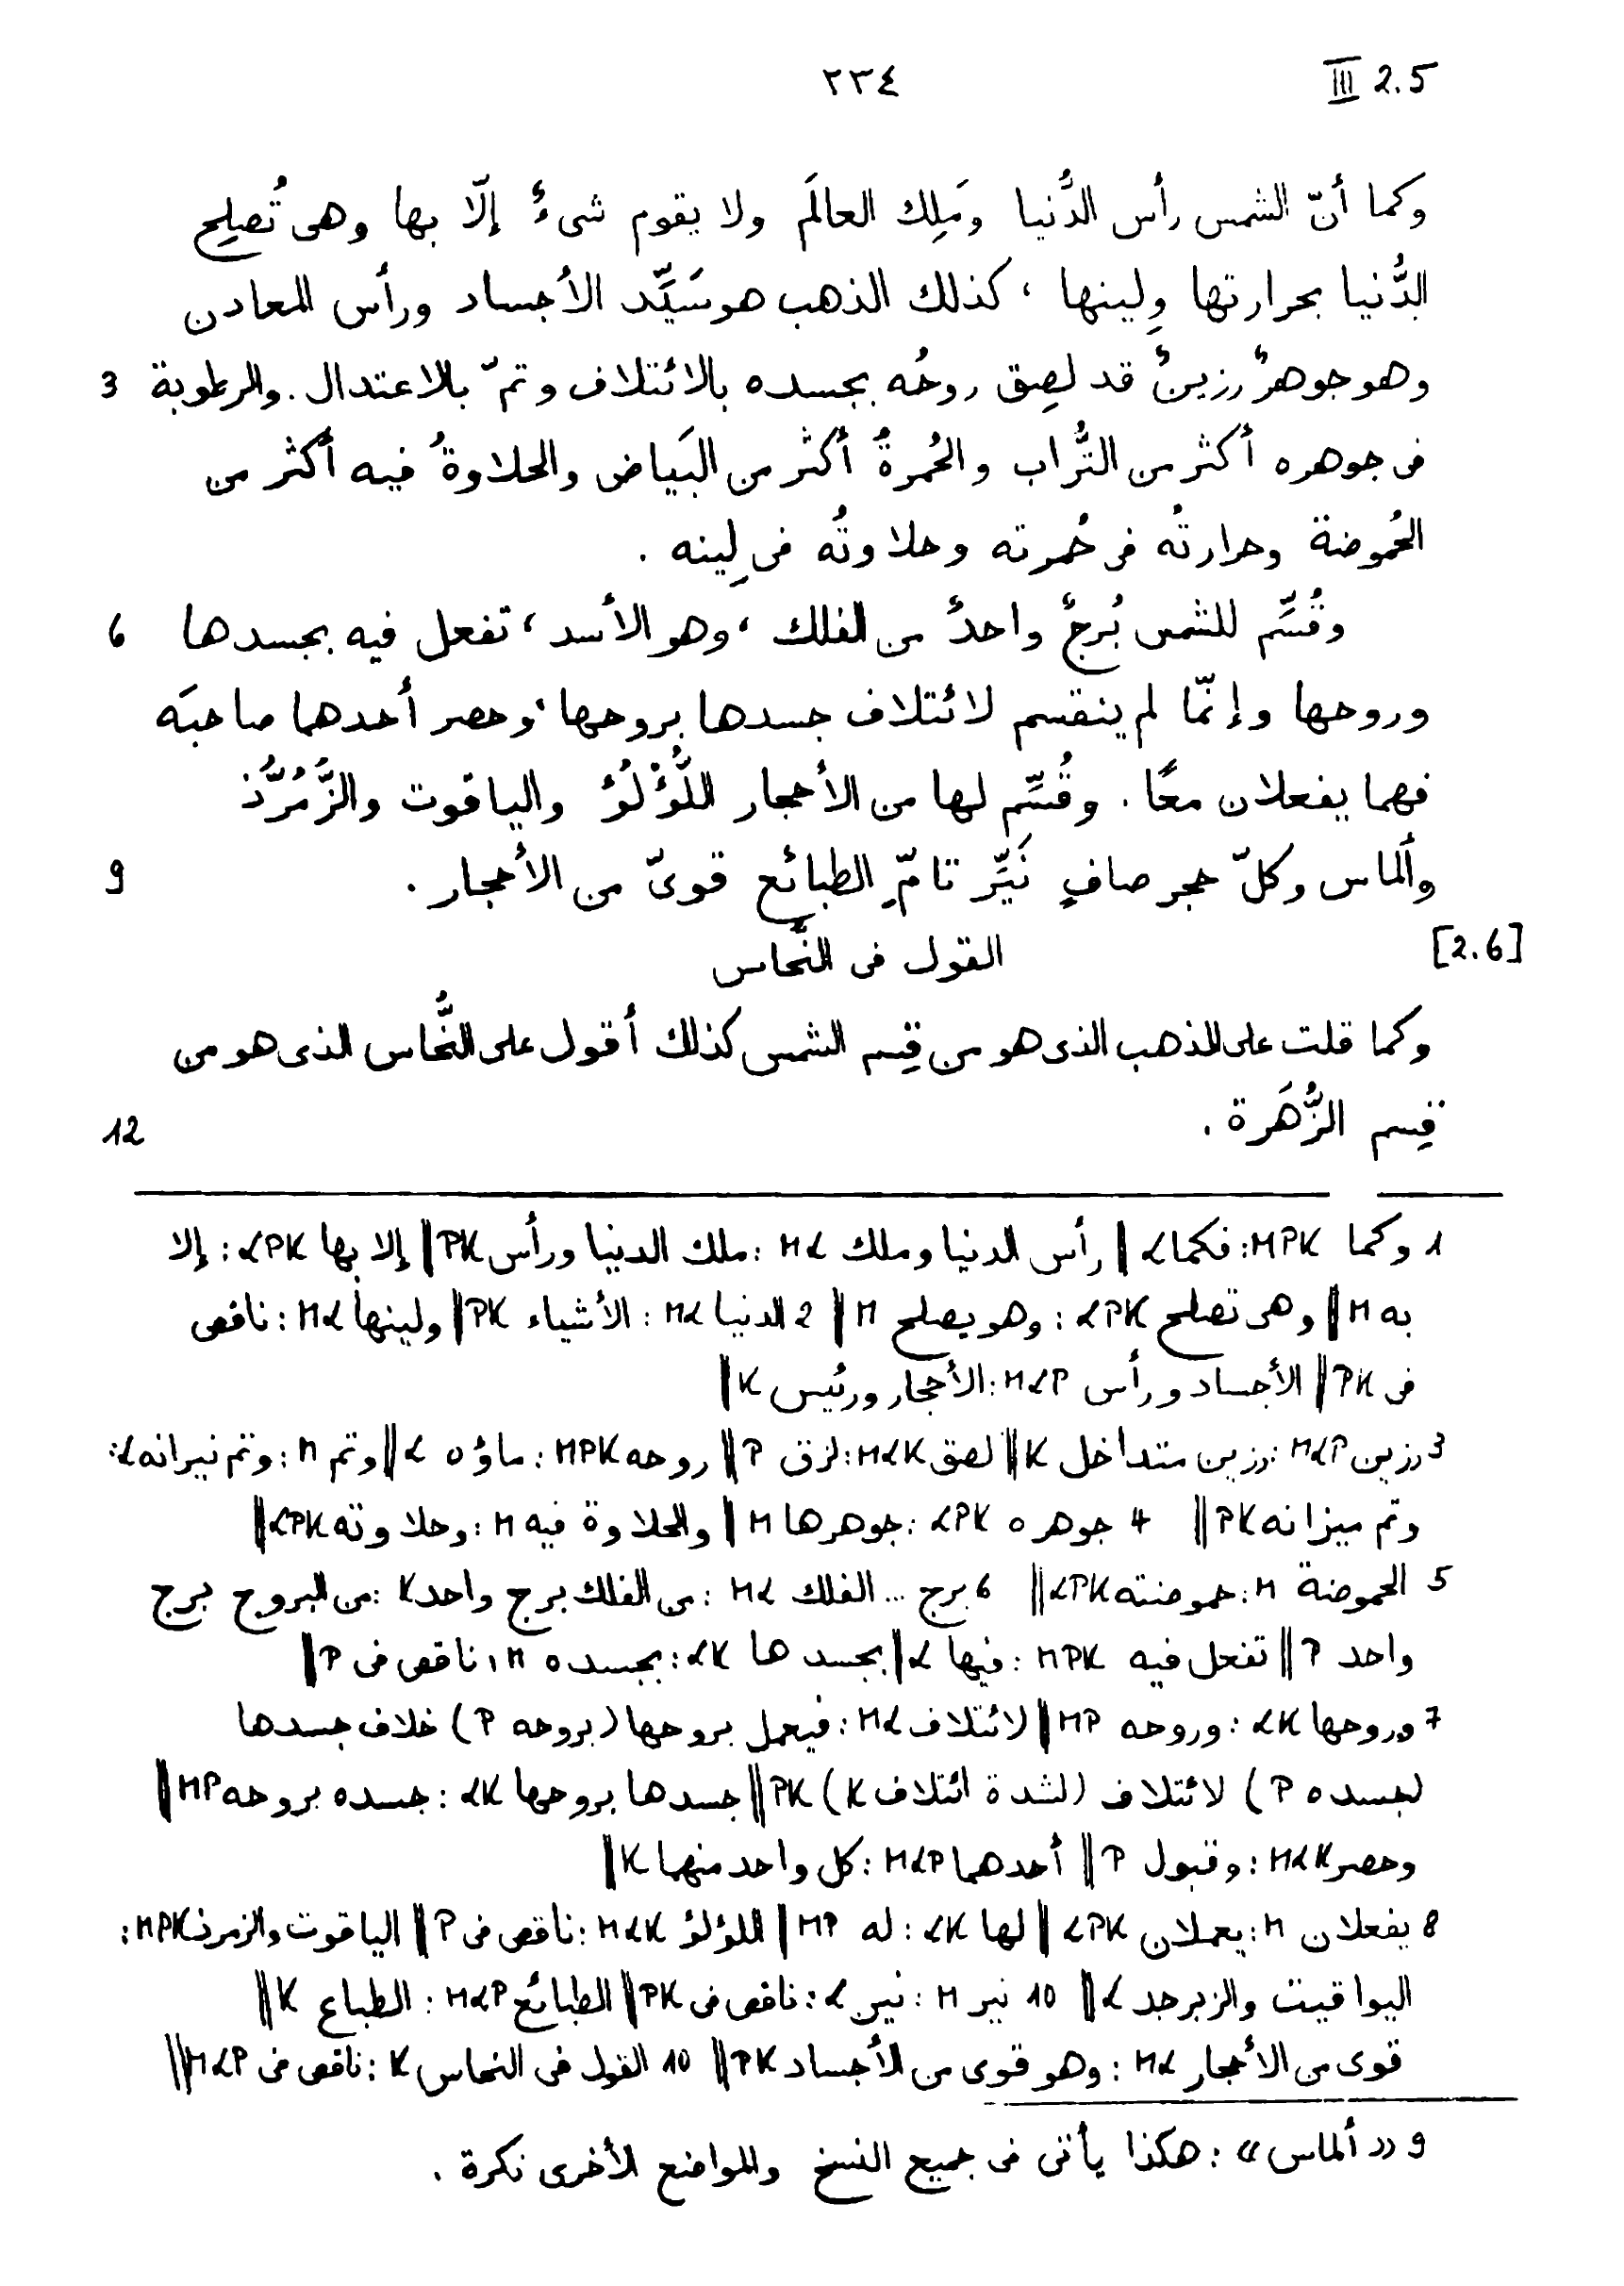 III 2.5
٢٣٤
وكما أنّ الشمس رأس الدُّنيا ومَلِك العالَم ولا يقوم شىءٌ إلّا بها وهى تُصلِح
الدُّنيا بحرارتها ولِينها ، كذلك الذهب هو سَيِّد الأجساد ورأس المعادن
وهو جوهرٌ رزينٌ قد لصِق روحُه بجسده بالائتلاف وتمّ بالاعتدال . والرطوبة 3
فى جوهره أكثر من التُّراب والحُمرةُ أكثر من البَياض والحلاوةُ فيه أكثر من
الحُموضة وحرارتُه فى حُمرته وحلاوتُه فى لِينه .
وقُسِّم للشمس بُرجٌ واحدٌ من الفلك ، وهو الأسد ، تفعل فيه بجسدها 6
وروحها وإنّما لم ينقسم لائتلاف جسدها بروحها ، وحصر أحدهما صاحبَه
فهما يفعلان معًا . وقُسِّم لها من الأحجار اللُّؤْلُؤ والياقوت والزُّمُرُّذ
وألماس وكلّ حجر صافٍ نَيِّر تامِّ الطبائع قوىّ من الأحجار . 9
[2.6] القول فى النُّحاس
وكما قلت على الذهب الذى هو من قِسم الشمس كذلك أقول على النُّحاس الذى هو من
قِسم الزُّهَرة . 12
1 وكما MPK : فكما L || رأس الدنيا وملك ML : ملك الدنيا ورأس PK || إلا بها LPK : إلا
به M || وهى تصلح LPK : وهو يصلح M || 2 الدنيا ML : الأشياء PK || ولينها ML : ناقص
فى PK || الأجساد ورأس MLP : الأحجار ورئيس K ||
3 رزين MLP : رزين متداخل K || لصق MLK : لزق P || روحه MPK : ماؤه L || وتم M : وتم نيرانه L :
وتم ميزانه PK || 4 جوهره LPK : جوهرها M || والحلاوة فيه M : وحلاوته LPK ||
5 الحموضة M : حموضته LPK || 6 برج ... الفلك ML : من الفلك برج واحد K : من البروج برج
واحد P || تفعل فيه MPK : فيها L || بجسدها LK : بجسده M ، ناقص فى P ||
7 وروحها LK : وروحه MP || لائتلاف ML : فيعمل بروحها (بروحه P) خلاف جسدها
(جسده P) لائتلاف (لشدة ائتلاف K) PK || جسدها بروحها LK : جسده بروحه MP ||
وحصر MLK : وقبول P || أحدهما MLP : كل واحد منهما K ||
8 يفعلان M : يعملان LPK || لها LK : له MP || اللؤلؤ MLK : ناقص فى P || الياقوت والزمرذ MPK :
اليواقيت والزبرجد L || 10 نير M : نيرن L : ناقص فى PK || الطبائع MLP : الطباع K ||
قوى من الأحجار ML : وهو قوى من الأجساد PK || 10 القول فى النحاس K : ناقص فى MLP ||
9 «ألماس» : هكذا يأتى فى جميع النسخ والمواضع الأخرى نكرة .